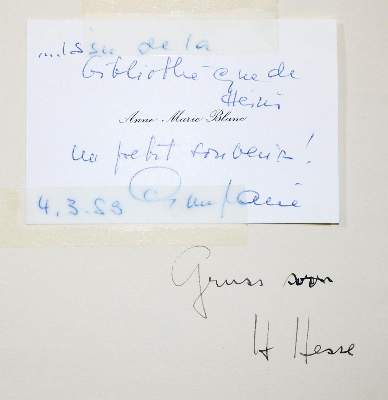 ...issu de la
bibliothèque de
Heini
Anne Marie Blanc
un petit souvenir!
4.3.83
Gruss von
H Hesse